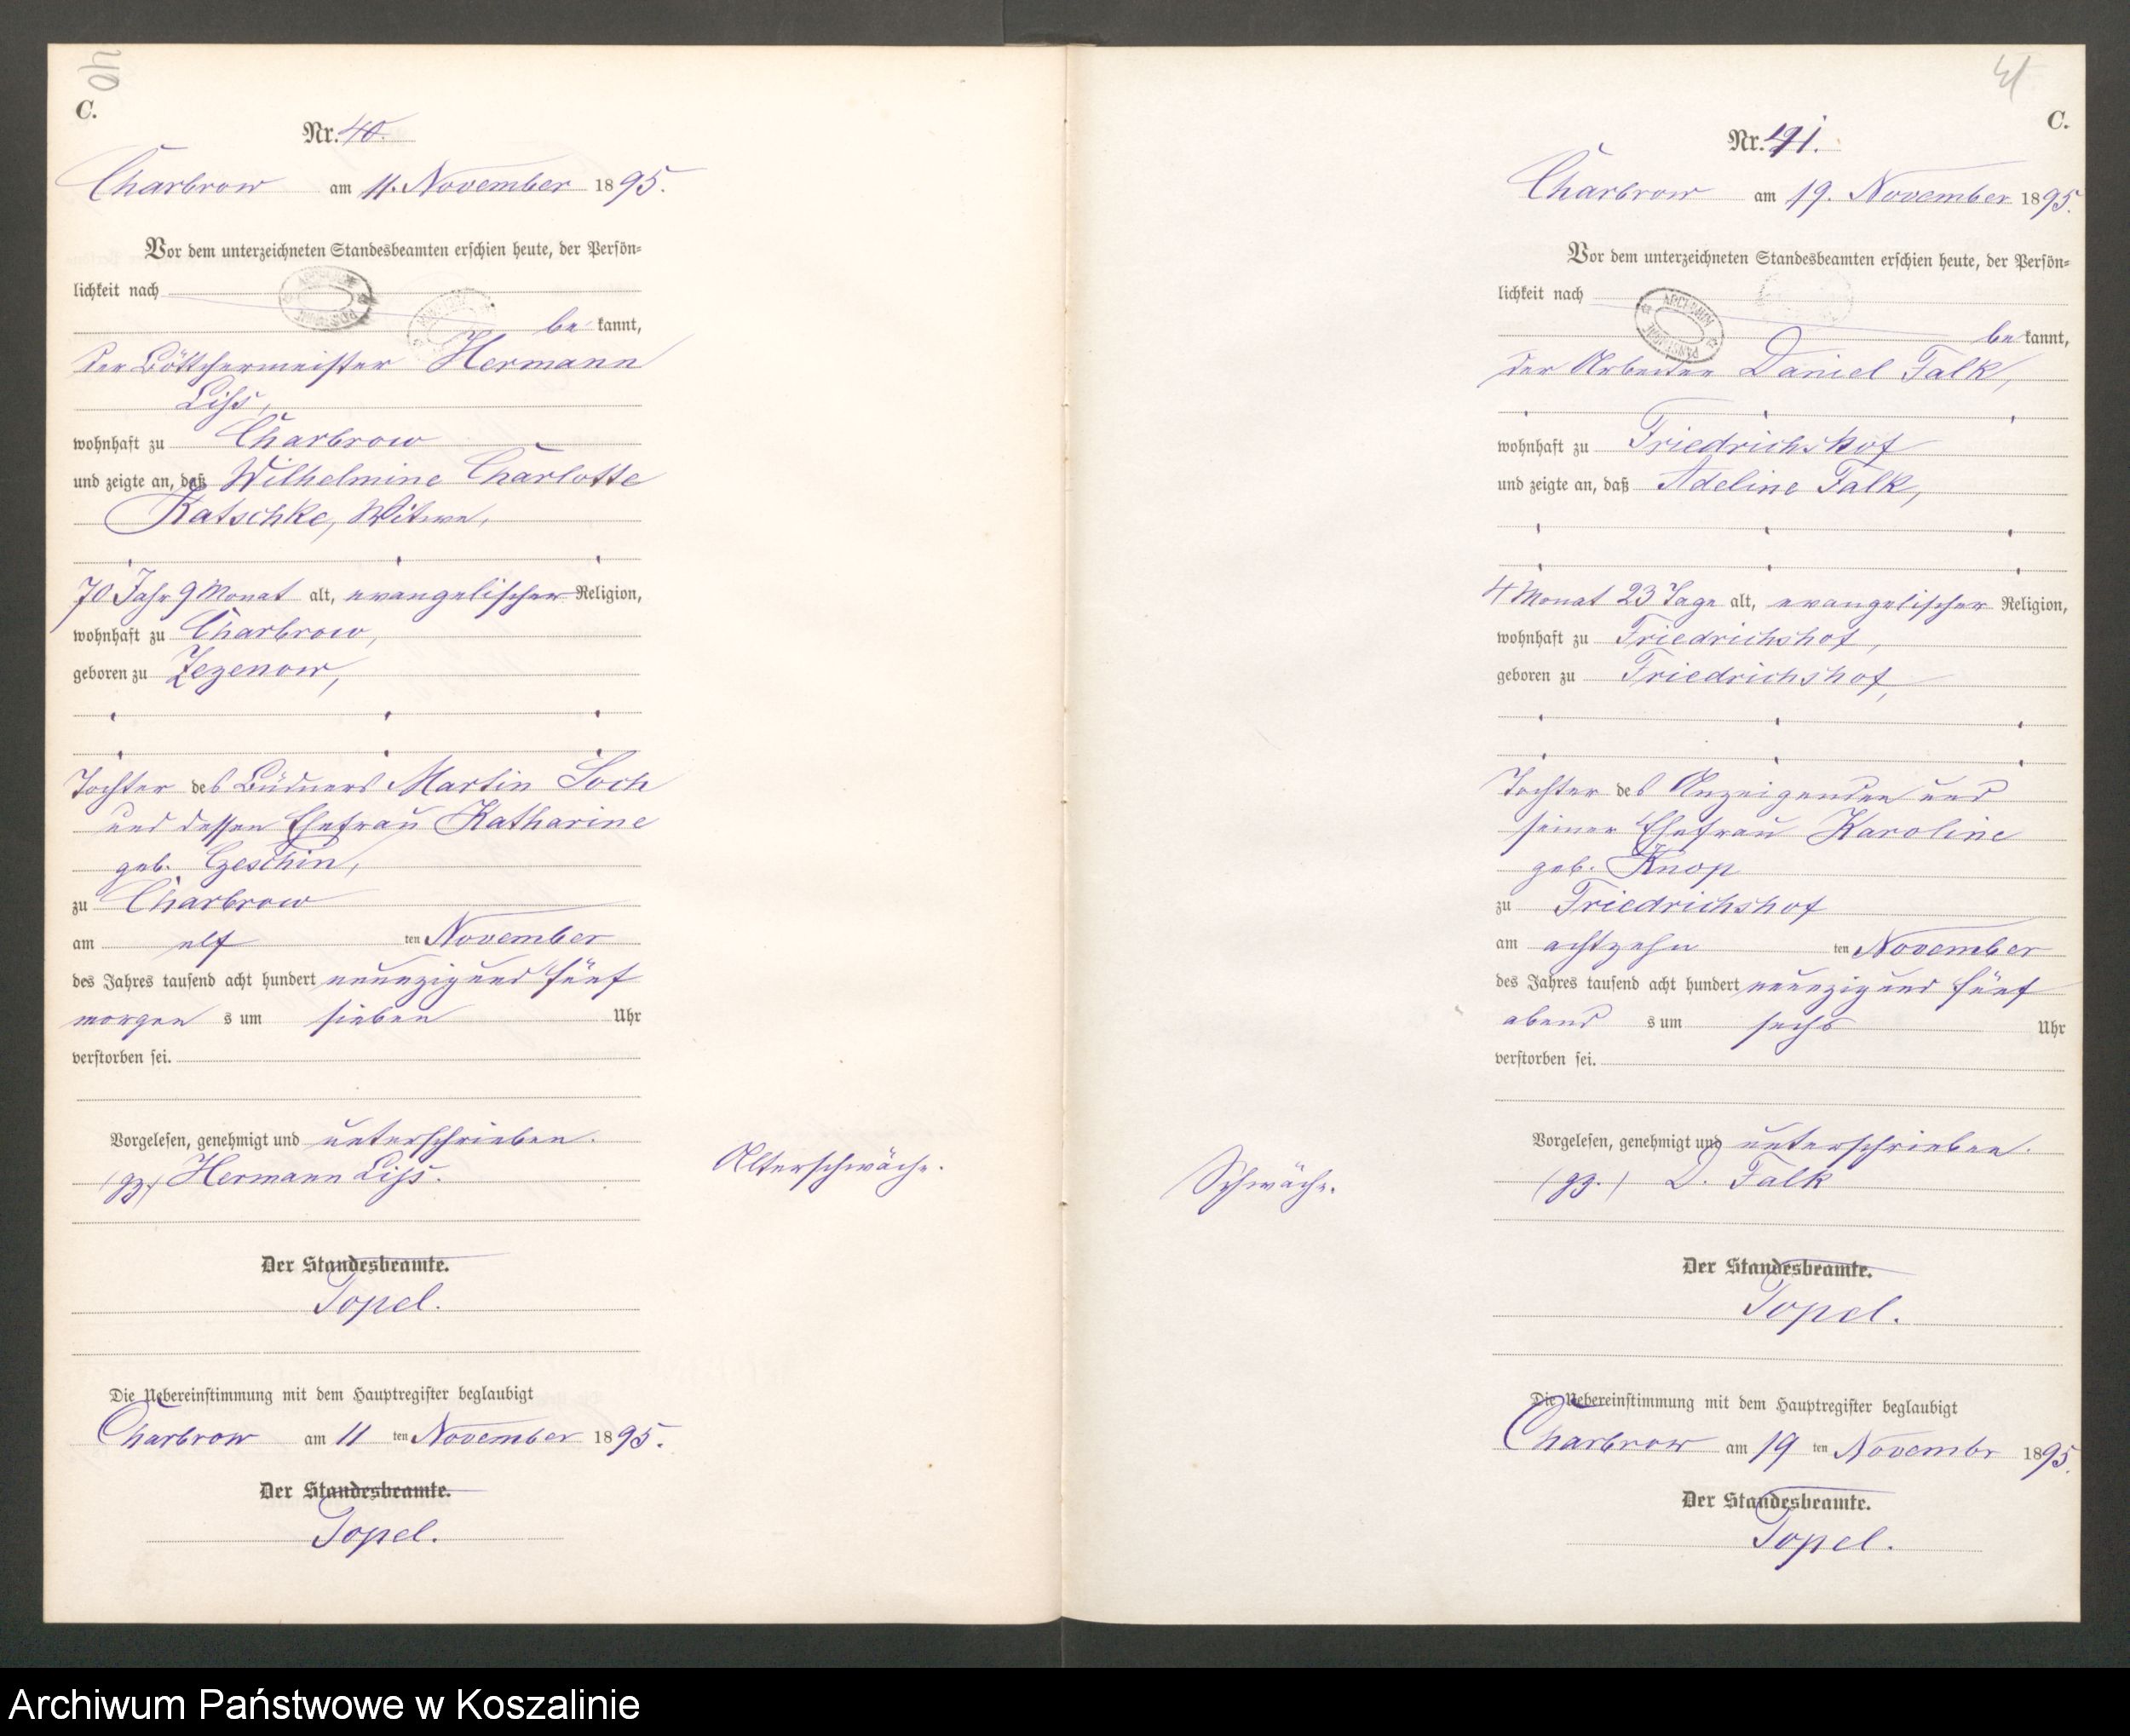 40
C.
Nr. 40.
Charbrow am 11. November 1895.
Vor dem unterzeichneten Standesbeamten erschien heute, der Persön-
lichkeit nach
be kannt,
der Böttchermeister Hermann
Liss,
wohnhaft zu Charbrow
und zeigte an, daß Wilhelmine Charlotte
Katschke, Witwe,
70 Jahr 9 Monat alt, evangelischer Religion,
wohnhaft zu Charbrow,
geboren zu Zezenow,
Tochter des Büdners Martin Soch
und dessen Ehefrau Katharine
geb. Czeschin,
zu Charbrow
am elf ten November
des Jahres tausend acht hundert neunzig und fünf
morgen s um sieben Uhr
verstorben sei.
Vorgelesen, genehmigt und unterschrieben.
(gz.) Hermann Liss.
Alterschwäche.
Der Standesbeamte.
Topel.
Die Uebereinstimmung mit dem Hauptregister beglaubigt
Charbrow am 11 ten November 1895.
Der Standesbeamte.
Topel.
41
C.
Nr. 41.
Charbrow am 19. November 1895.
Vor dem unterzeichneten Standesbeamten erschien heute, der Persön-
lichkeit nach
ARCHIWUM PAŃSTWOWE
be kannt,
der Arbeiter Daniel Falk,
wohnhaft zu Friedrichshof
und zeigte an, daß Adeline Falk,
4 Monat 23 Tage alt, evangelischer Religion,
wohnhaft zu Friedrichshof,
geboren zu Friedrichshof,
Tochter des Anzeigenden und
seiner Ehefrau Karoline
geb. Knop
zu Friedrichshof
am achtzehn ten November
des Jahres tausend acht hundert neunzig und fünf
abend s um sechs Uhr
verstorben sei.
Vorgelesen, genehmigt und unterschrieben.
(gz.) D. Falk
Schwäche.
Der Standesbeamte.
Topel.
Die Uebereinstimmung mit dem Hauptregister beglaubigt
Charbrow am 19 ten Novembr 1895.
Der Standesbeamte.
Topel.
Archiwum Państwowe w Koszalinie